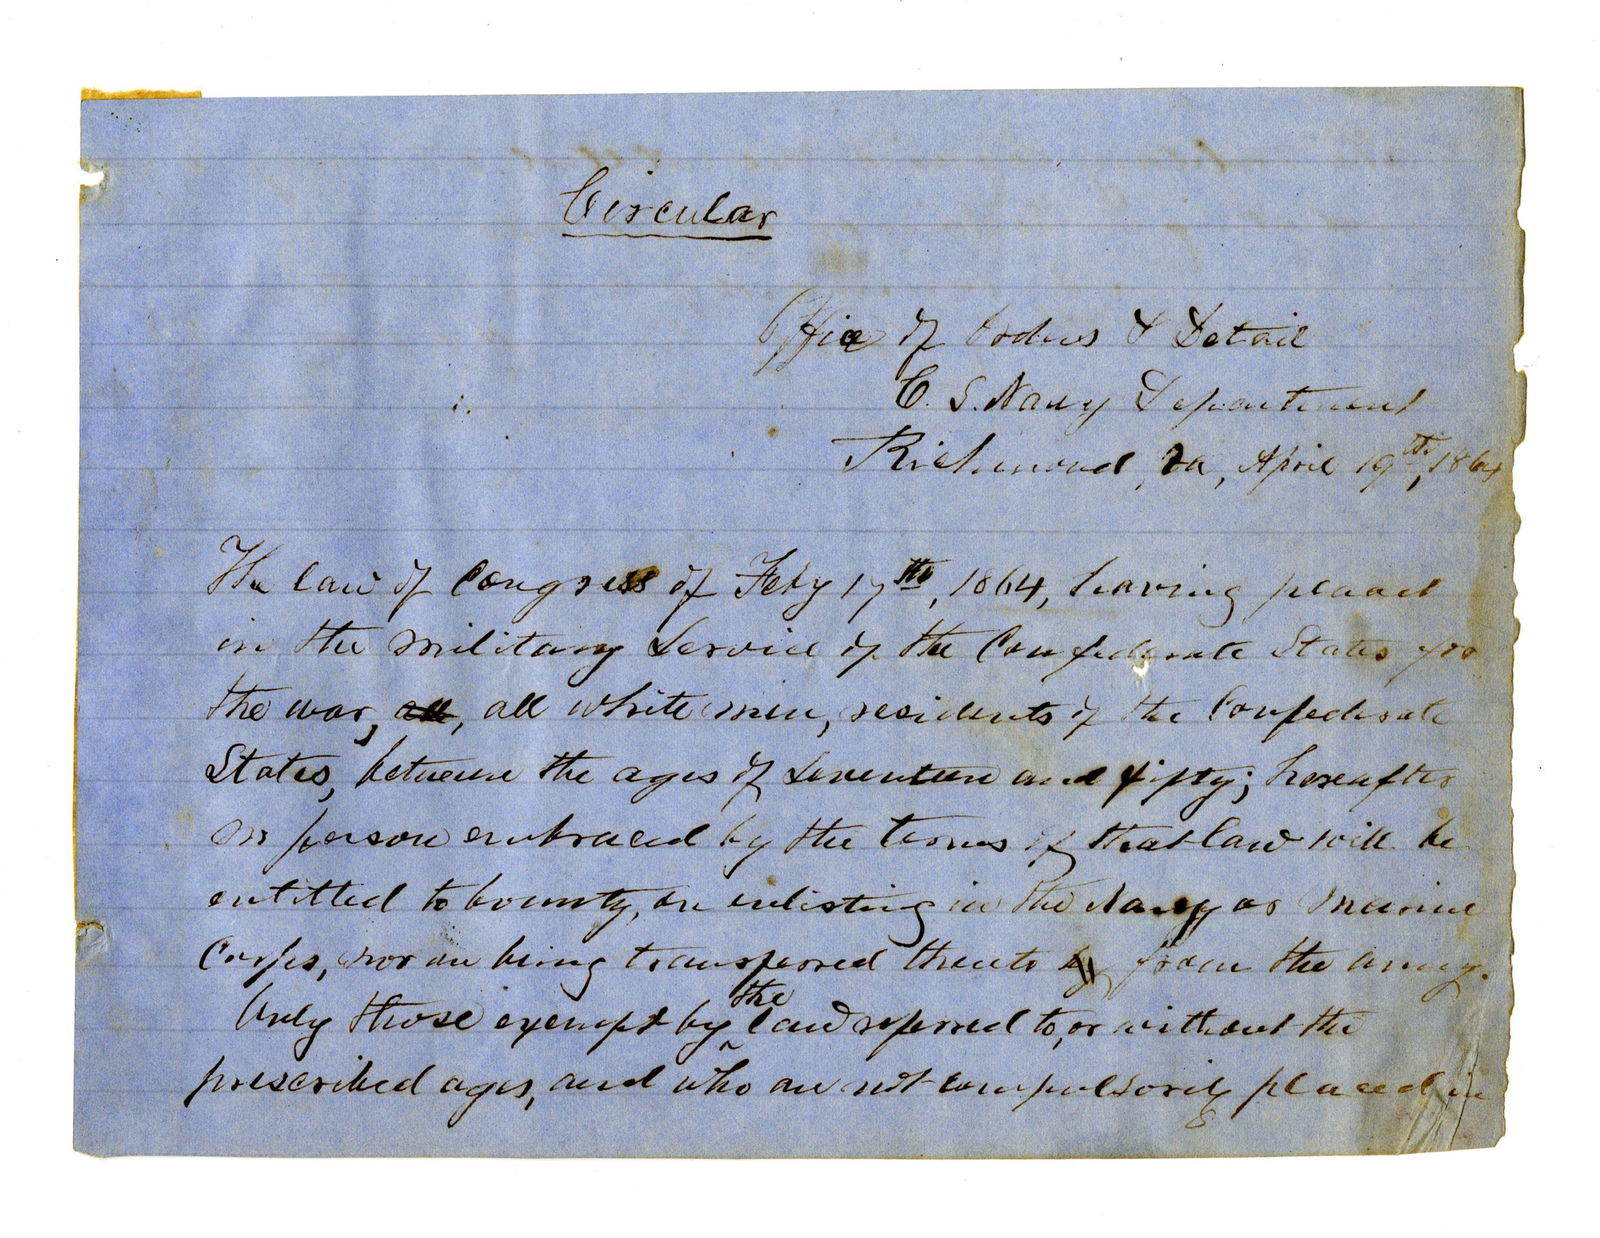 Circular
Office of Orders & Detail
C. S. Navy Department
Richmond, Va, April 19th, 1864
The law of Congress of Feby 17th, 1864, having placed
in the military service of the Confederate States for
the war, all, all white men, residents of the Confederate
States, between the ages of seventeen and fifty; hereafter
no person embraced by the terms of that law will be
entitled to bounty, on enlisting in the Navy or Marine
Corps, nor on being transferred thereto by from the army.
Only those exempt by the law referred to, or without the
prescribed ages, and who are not compulsorily placed in